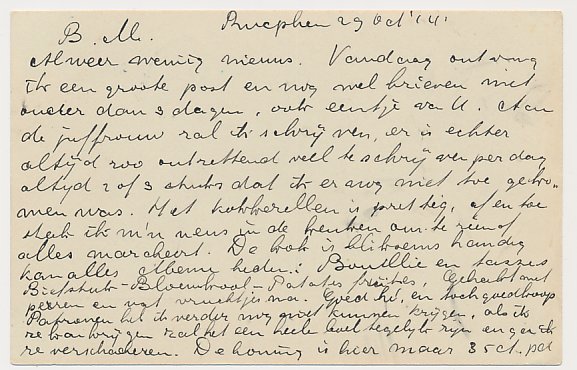 Rucphen 29 Oct '14.
B. M.
Alweer weinig nieuws. Vandaag ontving
ik een groote post en nog wel brieven niet
ouder dan 3 dagen, ook eentje van U. Aan
de juffrouw zal ik schrijven, er is echter
altijd zoo ontzettend veel te schrijven per dag
altijd 2 of 3 stuks dat ik er nog niet toe geko-
men was. Het is prettig, af en toe
steek ik m'n neus in de keuken om te zien of
alles marcheert. De kok is bliksems handig
kan alles. Menu heden: Bouillie en tasses
Biefstuk - Bloemkool - Patates frites, Gehakt met
peren en wat vruchtjes na. Goed hè, en toch goedkoop
Patronen heb ik verder nog niet kunnen krijgen, als ik
ze kan krijgen zal het een heele boel tegelijk zijn en ga ik
ze verschacheren. De honing is hier maar 35 ct. pot